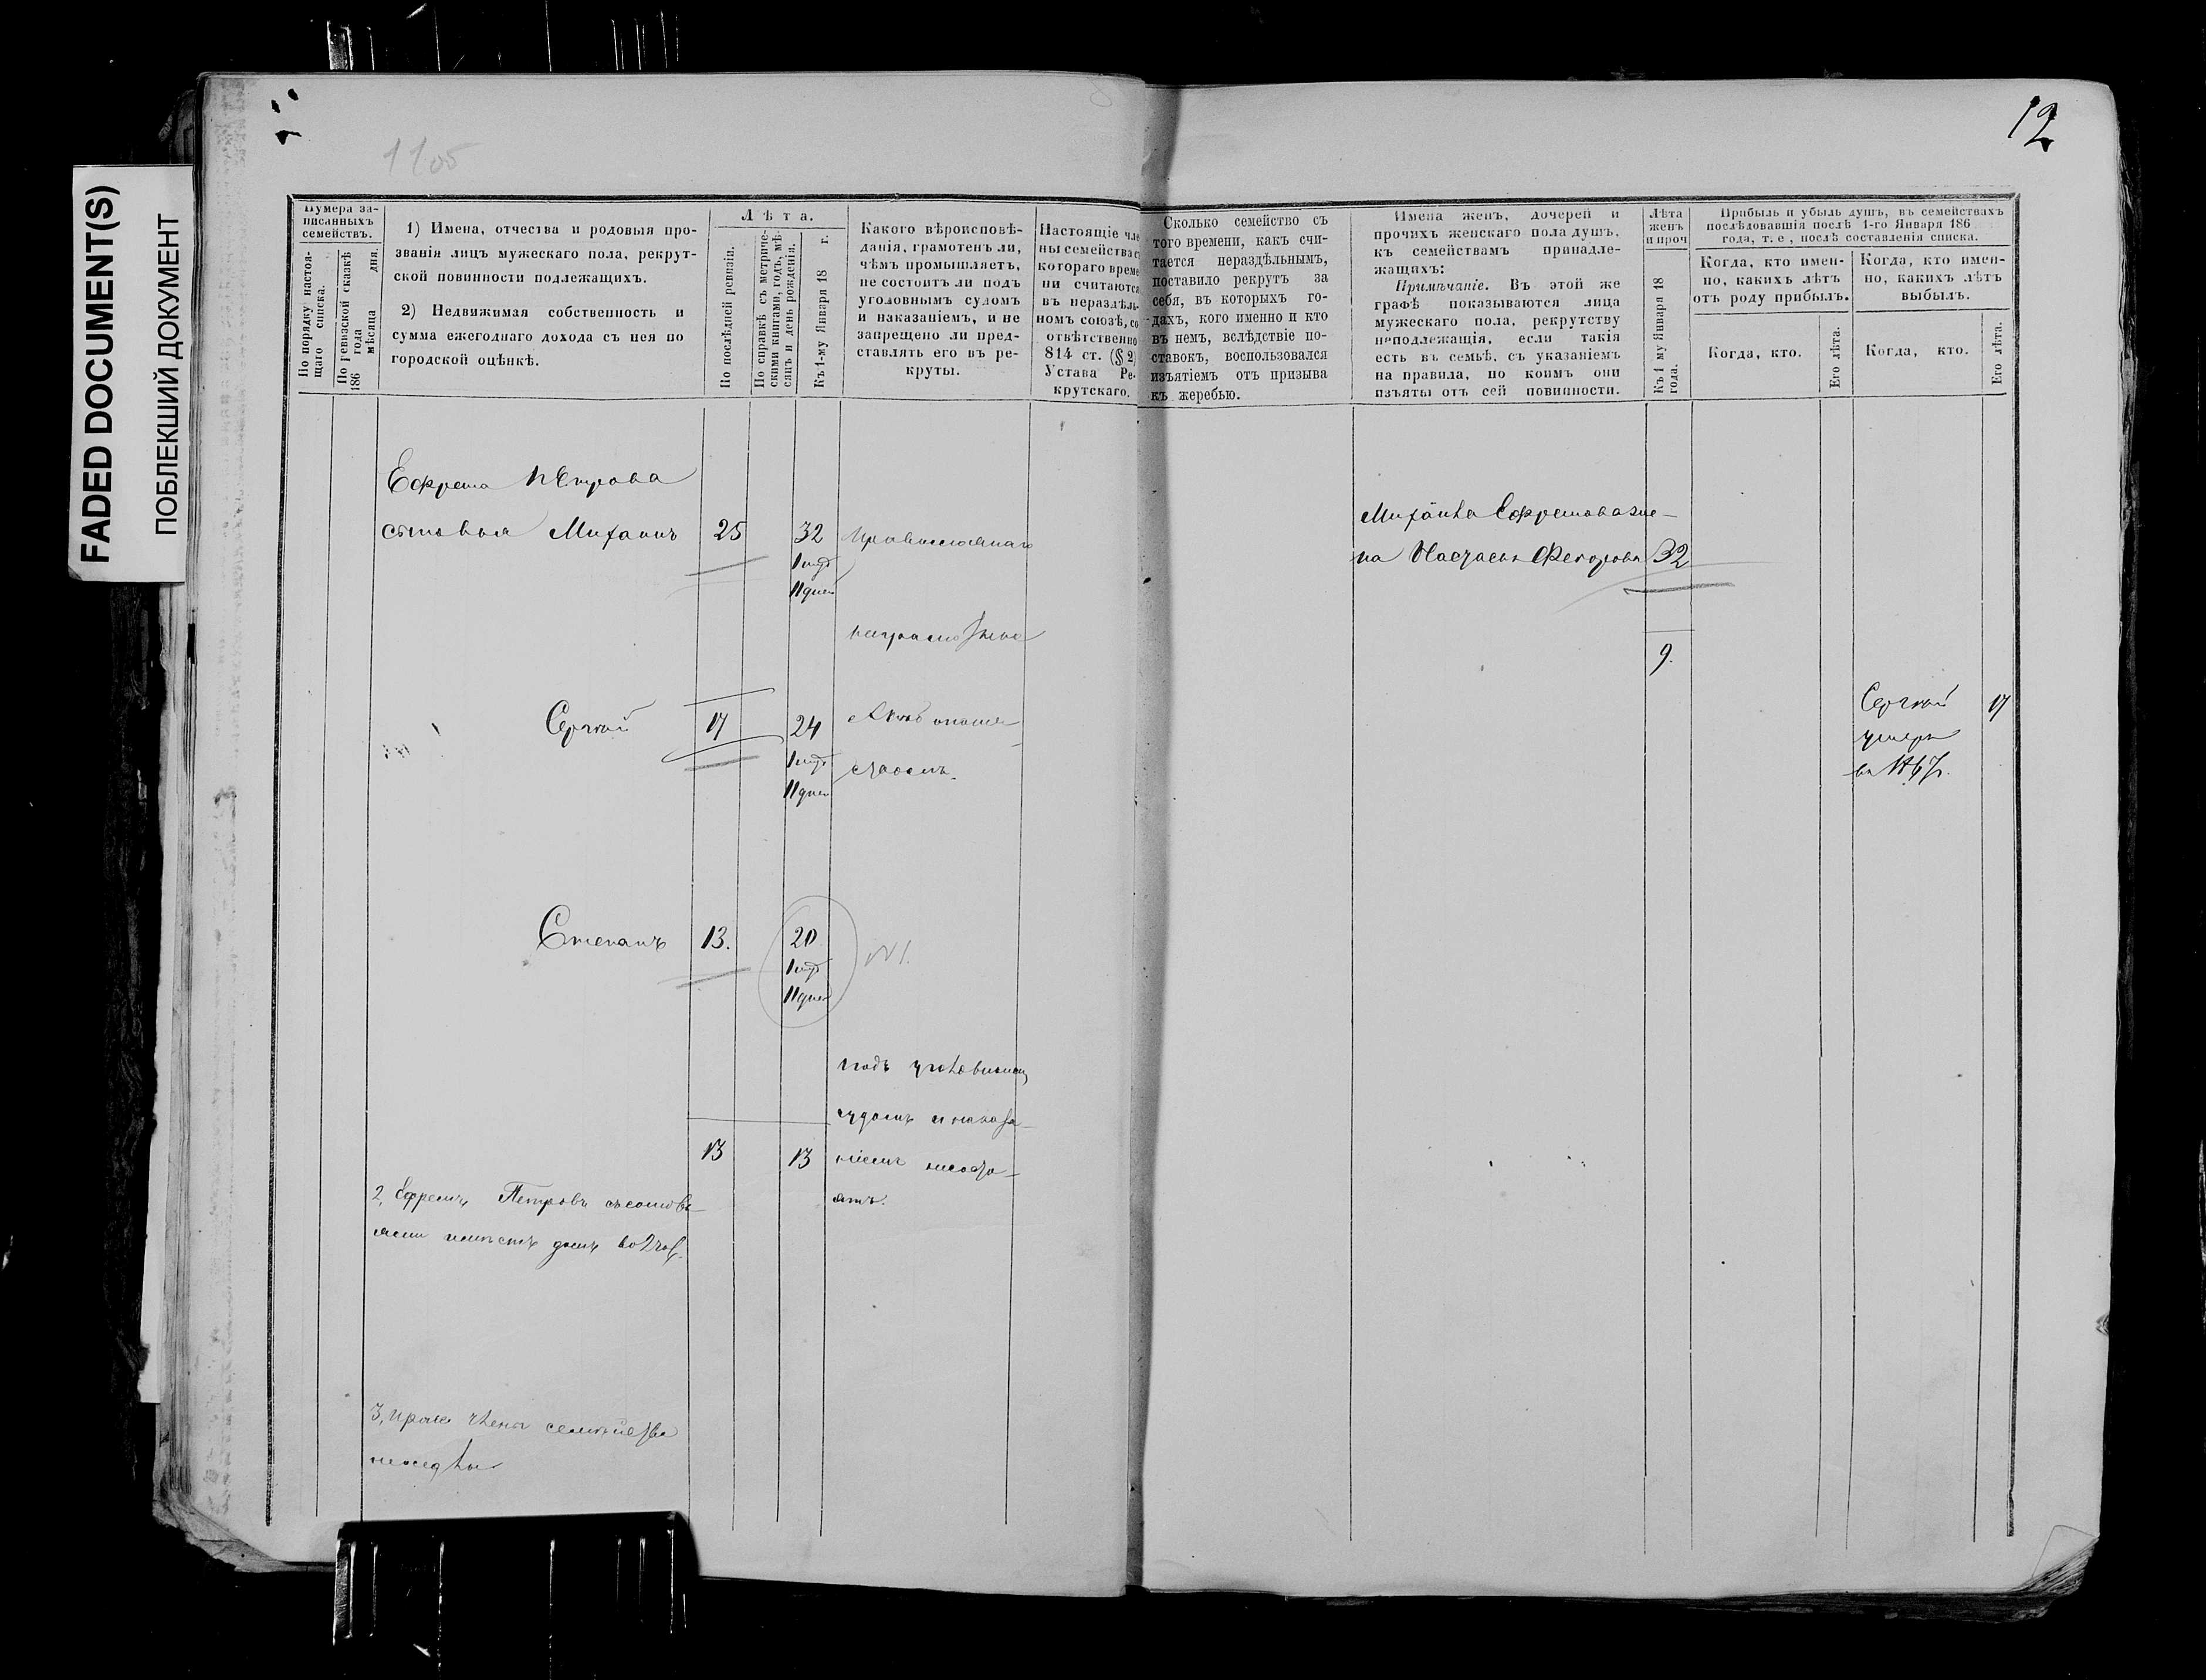 FADED DOCUMENT(S)
ПОБЛЕКШИЙ ДОКУМЕНТ
1105
12
Нумера за-
писанныхъ
семействъ.
По порядку настоя-
щаго списка.
По Ревизской сказкѣ
186 года
мѣсяца дня.
1) Имена, отчества и родовыя про-
званія лицъ мужескаго пола, рекрут-
ской повинности подлежащихъ.
2) Недвижимая собственность и
сумма ежегоднаго дохода съ нея по
городской оцѣнкѣ.
Лѣта.
По послѣдней ревизіи.
По справкѣ съ метриче-
скими книгами, годъ, мѣ-
сяцъ и день рожденія.
Къ 1-му Января 18 г.
Какого вѣроисповѣ-
данія, грамотенъ ли,
чѣмъ промышляетъ,
не состоитъ ли подъ
уголовнымъ судомъ
и наказаніемъ, и не
запрещено ли пред-
ставлять его въ ре-
круты.
Настоящіе чле
ны семейства с
котораго време
ни считаются
въ нераздѣль-
номъ союзѣ, со
отвѣтственно
814 ст. (§ 2)
Устава Ре-
крутскаго.
Сколько семейство съ
того времени, какъ счи-
тается нераздѣльнымъ,
поставило рекрутъ за
себя, въ которыхъ го-
дахъ, кого именно и кто
въ немъ, вслѣдствіе по-
ставокъ, воспользовался
изъятіемъ отъ призыва
къ жеребью.
Имена женъ, дочерей и
прочихъ женскаго пола душъ,
къ семействамъ принадле-
жащихъ:
Примѣчаніе. Въ этой же
графѣ показываются лица
мужескаго пола, рекрутству
неподлежащія, если такія
есть въ семьѣ, съ указаніемъ
на правила, по коимъ они
изъяты отъ сей повинности.
Лѣта
женъ
и проч
Къ 1 му Января 18
года.
Прибыль и убыль душъ, въ семействахъ
послѣдовавшія послѣ 1-го Января 186
года, т. е., послѣ составленія списка.
Когда, кто имен-
но, какихъ лѣтъ
отъ роду прибылъ.
Когда, кто.
Его лѣта.
Когда, кто имен-
но, какихъ лѣтъ
выбылъ.
Когда, кто.
Его лѣта.
Ефрема Петрова
сыновья Михаилъ 25 32
11 дней
православнаго
Сергѣй 17 24
11 дней
Степанъ 13. 20
11 дней
№1.
подъ уголовнымъ
судомъ и наказа-
ніемъ несосто-
ятъ.
13 13
2, Ефремъ Петровъ съ сыновь-
ями имѣетъ домъ
3, прочіе члены семейства
Михаила Ефремова же-
на Настасья Федорова 32
9.
Сергѣй 17
умеръ